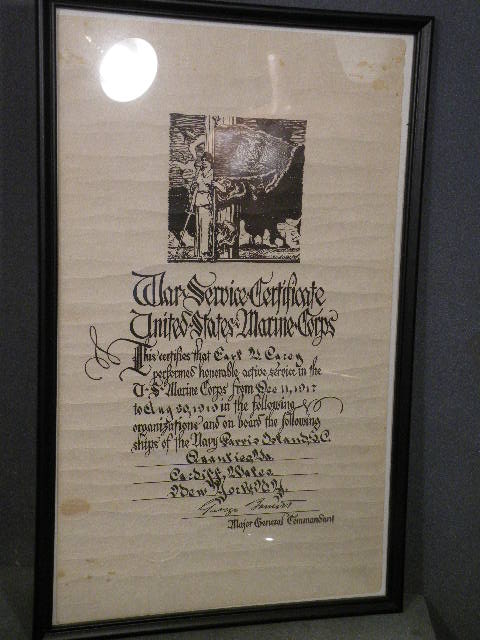 War·Service·Certificate
United·States·Marine·Corps
This certifies that Earl V. Carey
performed honorable active service in the
U·S·Marine Corps from Dec 11, 1917
to Aug 30, 1919 in the following
organizations and on board the following
ships of the Navy Parris Island S.C.
Quantico Va.
Cardiff, Wales
New York N.Y.
George Barnett
Major General Commandant